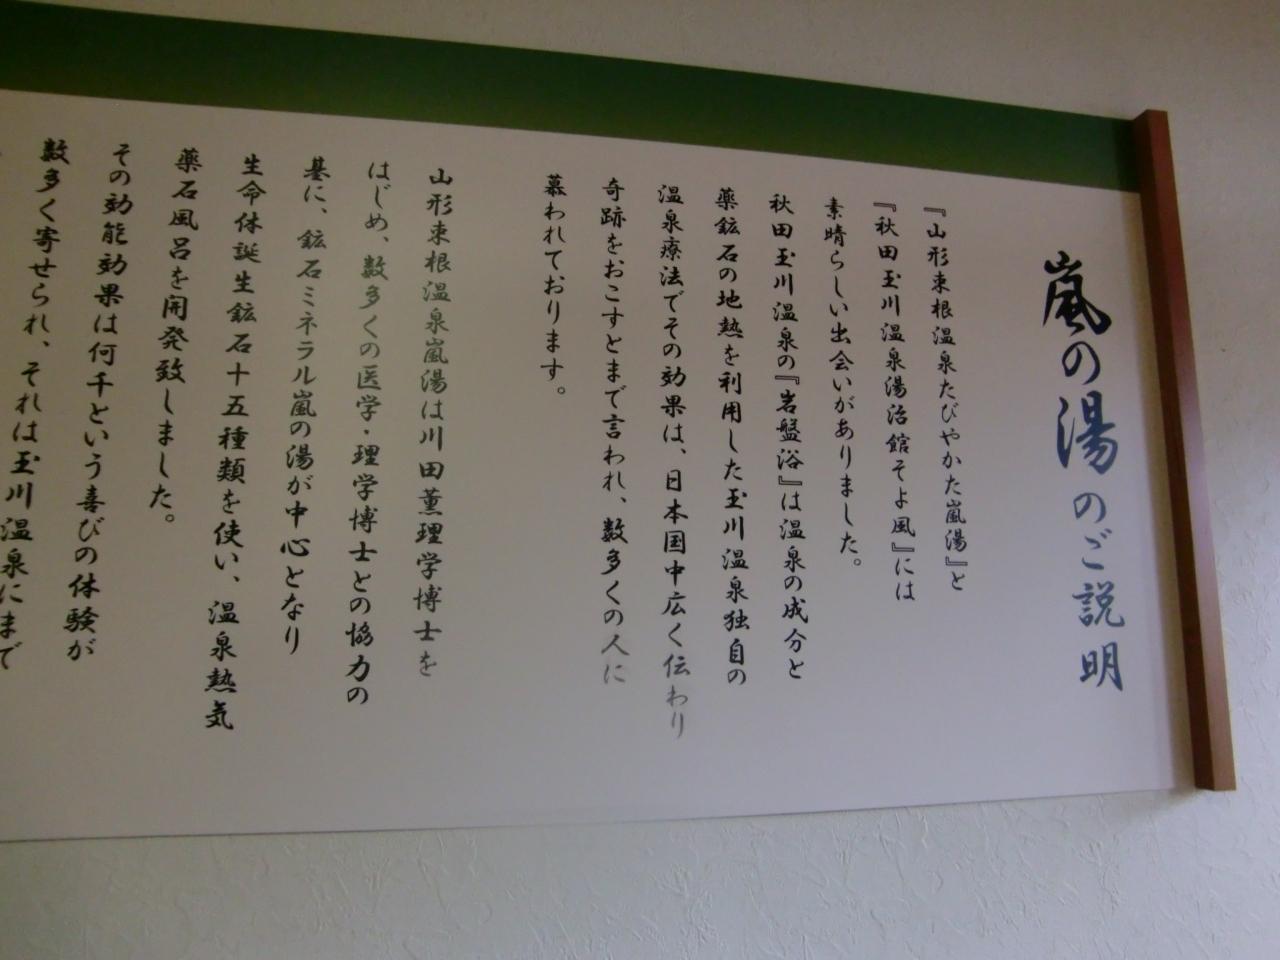 嵐の湯のご説明
『山形東根温泉たびやかた嵐湯』と
『秋田玉川温泉湯治館そよ風』には
素晴らしい出会いがありました。
秋田玉川温泉の『岩盤浴』は温泉の成分と
薬鉱石の地熱を利用した玉川温泉独自の
温泉療法でその効果は、日本国中広く伝わり
奇跡をおこすとまで言われ、数多くの人に
慕われております。
山形東根温泉嵐湯は川田薫理学博士を
はじめ、数多くの医学・理学博士との協力の
基に、鉱石ミネラル嵐の湯が中心となり
生命体誕生鉱石十五種類を使い、温泉熱気
薬石風呂を開発致しました。
その効能効果は何千という喜びの体験が
数多く寄せられ、それは玉川温泉にまで